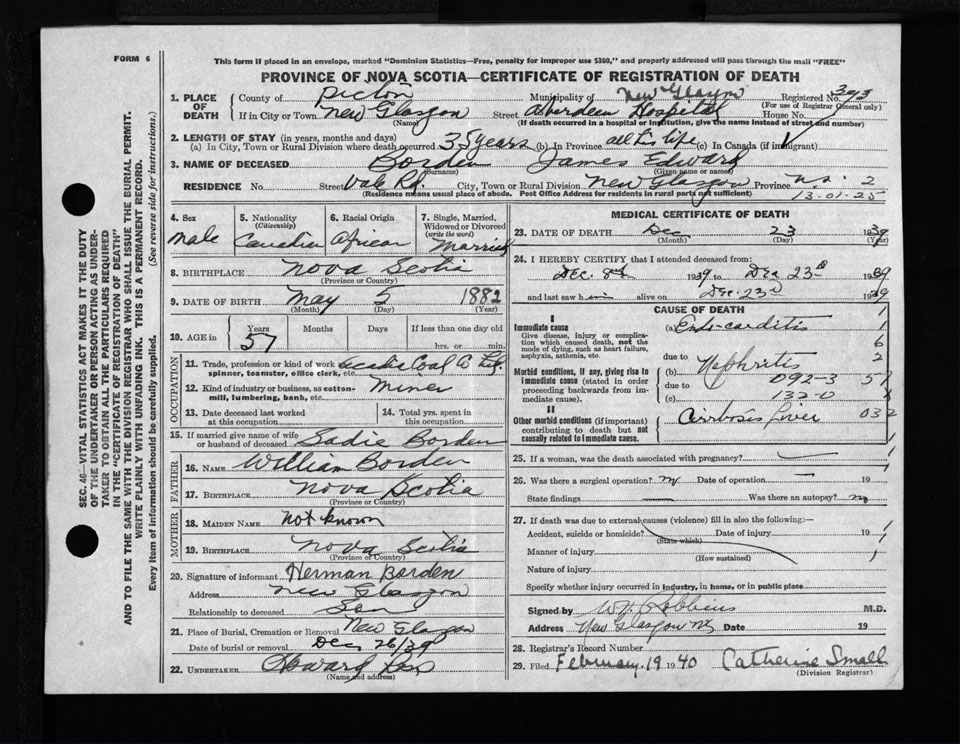 FORM 6
This form if placed in an envelope, marked "Dominion Statistics—Free, penalty for improper use $300," and properly addressed will pass through the mail "FREE"
PROVINCE OF NOVA SCOTIA—CERTIFICATE OF REGISTRATION OF DEATH
1. PLACE OF DEATH { County of Pictou Municipality of New Glasgow Registered No. 393
(For use of Registrar General only)
If in City or Town New Glasgow (Name) Street Aberdeen Hospital House No.
(If death occurred in a hospital or institution, give the name instead of street and number)
2. LENGTH OF STAY (in years, months and days)
(a) In City, Town or Rural Division where death occurred 35 years (b) In Province all his life (c) In Canada (if immigrant)
3. NAME OF DECEASED Borden (Surname) James Edward (Given name or names)
RESIDENCE No. Street Vale Rd. City, Town or Rural Division New Glasgow Province N.S. 2
(Residence means usual place of abode. Post Office Address for residents in rural parts not sufficient) 13-01-25
4. Sex Male
5. Nationality (Citizenship) Canadian
6. Racial Origin African
7. Single, Married, Widowed or Divorced (write the word) Married
8. BIRTHPLACE Nova Scotia
(Province or Country)
9. DATE OF BIRTH May 5 1882
(Month) (Day) (Year)
10. AGE in { Years 57 Months Days If less than one day old
hrs. or min.
OCCUPATION
11. Trade, profession or kind of work as spinner, teamster, office clerk, etc. Acadia Coal Co
12. Kind of industry or business, as cotton-mill, lumbering, bank, etc. Miner
13. Date deceased last worked at this occupation
14. Total yrs. spent in this occupation
15. If married give name of wife or husband of deceased Sadie Borden
FATHER
16. NAME William Borden
17. BIRTHPLACE Nova Scotia
(Province or Country)
MOTHER
18. MAIDEN NAME not known
19. BIRTHPLACE Nova Scotia
(Province or Country)
20. Signature of informant Herman Borden
Address New Glasgow
Relationship to deceased Son
21. Place of Burial, Cremation or Removal New Glasgow
Date of burial or removal Dec 26/39
22. UNDERTAKER
(Name and address)
MEDICAL CERTIFICATE OF DEATH
23. DATE OF DEATH Dec 23 1939
(Month) (Day) (Year)
24. I HEREBY CERTIFY that I attended deceased from:
Dec. 8th 1939 to Dec 23rd 1939
and last saw him alive on Dec. 23rd 1939
CAUSE OF DEATH
I
Immediate cause (a) Endo-carditis
Give disease, injury or complication which caused death, not the mode of dying, such as heart failure, asphyxia, asthenia, etc.
due to
Morbid conditions, if any, giving rise to immediate cause (stated in order proceeding backwards from immediate cause). (b) Nephritis
due to 092-3 57
(c) 132-0
II
Other morbid conditions (if important) contributing to death but not causally related to immediate cause. Cirrhosis liver 032
25. If a woman, was the death associated with pregnancy?
26. Was there a surgical operation? no Date of operation 19
State findings Was there an autopsy? no
27. If death was due to external causes (violence) fill in also the following:—
Accident, suicide or homicide? Date of injury 19
(State which)
Manner of injury
(How sustained)
Nature of injury
Specify whether injury occurred in industry, in home, or in public place
Signed by M.D.
Address New Glasgow NS Date 19
28. Registrar's Record Number
29. Filed February 19 1940 Catherine Small
(Division Registrar)
SEC. 46—VITAL STATISTICS ACT MAKES IT THE DUTY
OF THE UNDERTAKER OR PERSON ACTING AS UNDER-
TAKER TO OBTAIN ALL THE PARTICULARS REQUIRED
IN THE "CERTIFICATE OF REGISTRATION OF DEATH"
AND TO FILE THE SAME WITH THE DIVISION REGISTRAR WHO SHALL ISSUE THE BURIAL PERMIT.
WRITE PLAINLY WITH UNFADING INK. THIS IS A PERMANENT RECORD.
Every item of information should be carefully supplied. (See reverse side for instructions.)